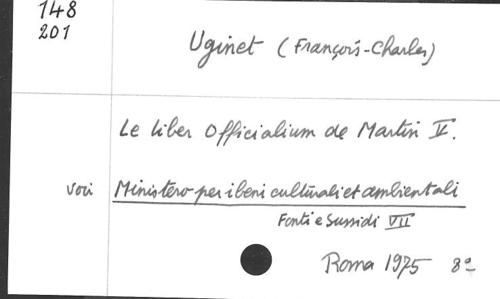 148
201
Uginet (François-Charles)
Le Liber Officialium de Martin V.
voir Ministero per i beni culturali et ambientali
Fonti e Sussidi VII
Roma 1975 8°